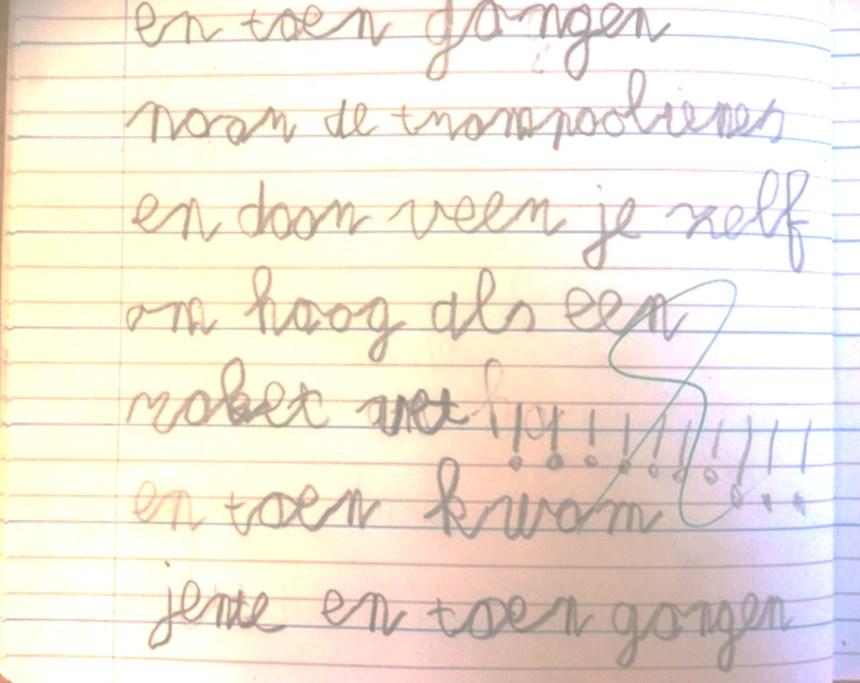 en toen gongen
naar de trampoolienes
en daan veen je zelf
om hoog als een
raket wet !!!!!!!!!!
en toen kwam
jente en toen gongen